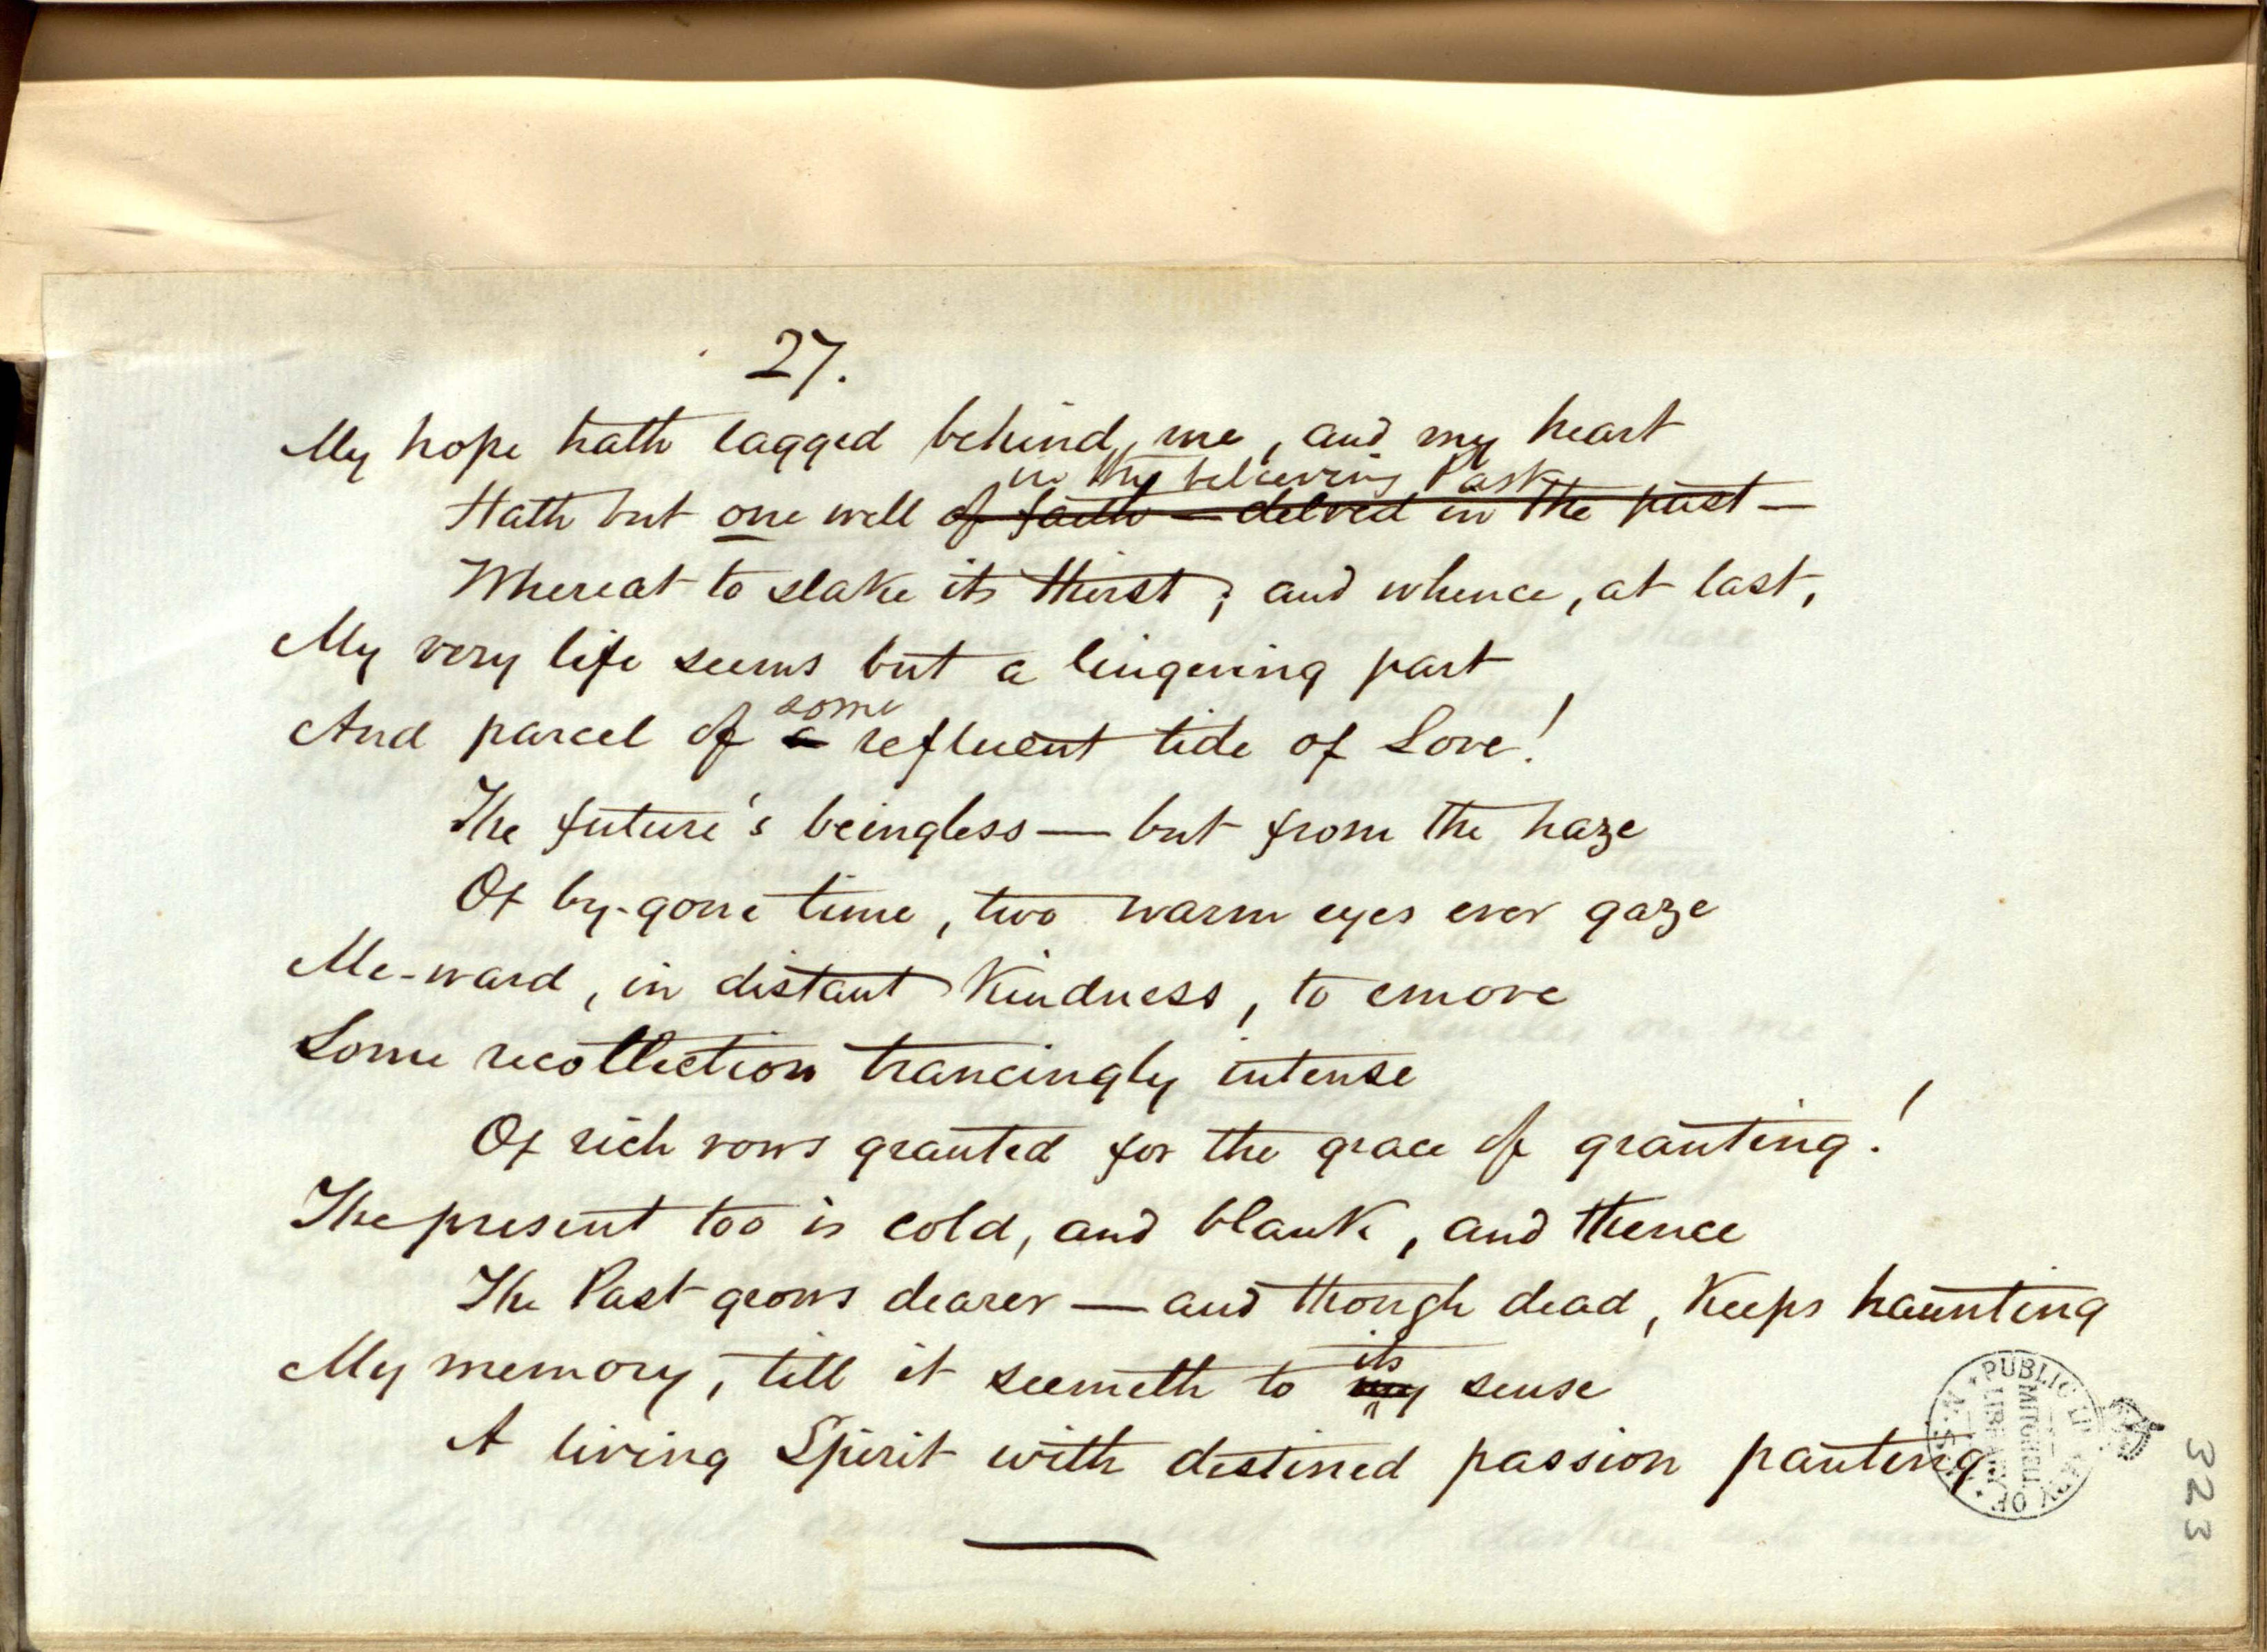 27.
My hope hath lagged behind, me, and my heart
in thy believing Past
Hath but one well of faith — delved in the past —
Whereat to slake its thirst; and whence, at last,
My very life seems but a lingering part
some
And parcel of a refluent tide of Love!
The future's beingless — but from the haze
Of by-gone time, two warm eyes ever gaze
Me-ward, in distant kindness, to emove
Some recollection trancingly intense
Of rich vows granted for the grace of granting!
The present too is cold, and blank, and thence
The Past grows dearer — and though dead, keeps haunting
its
My memory, till it seemeth to my sense
A living Spirit with destined passion panting
PUBLIC LIBRARY OF N.S.W.
MITCHELL
LIBRARY
323